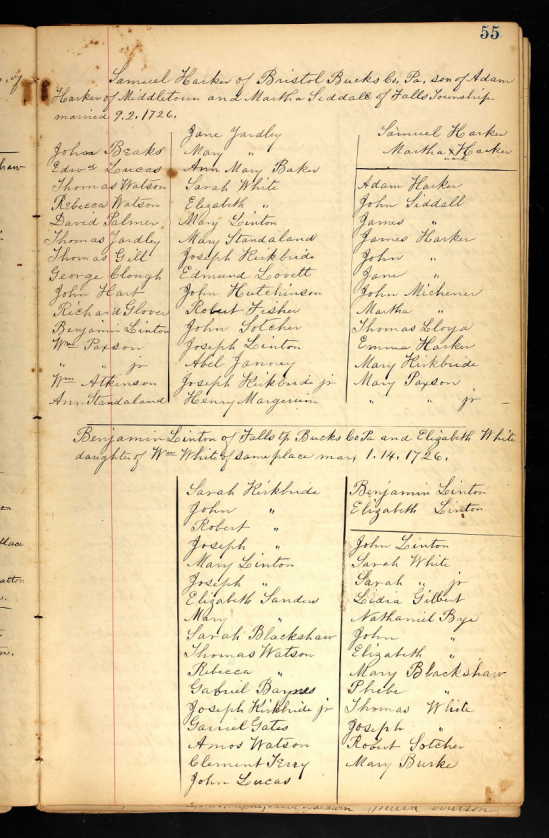 55
Samuel Harker of Bristol Bucks Co, Pa, son of Adam
Harker of Middletown and Martha Siddall of Falls Township
married 9.2.1726.
John Beaks
Edwd Lucas
Thomas Watson
Rebecca Watson
David Palmer
Thomas Yardley
Thomas Gill
George Clough
John Hart
Richard Glover
Benjamin Linton
Wm Paxson
" " jr
Wm Atkinson
Ann Standaland
Jane Yardley
Mary "
Ann Mary Baker
Sarah White
Elizabeth "
Mary Linton
Mary Standaland
Joseph Kirkbride
Edmund Lovett
John Hutchinson
Robert Fisher
John Sotcher
Joseph Linton
Abel Janney
Joseph Kirkbride jr
Henry Margerum
Samuel Harker
Martha x Harker
Adam Harker
John Siddall
James "
James Harker
John "
Jane "
John Michener
Martha "
Thomas Lloyd
Emma Harker
Mary Kirkbride
Mary Paxson
" " jr
Benjamin Linton of Falls tp Bucks Co Pa and Elizabeth White
daughter of Wm White of same place mar, 1.14.1726.
Sarah Kirkbride
John "
Robert "
Joseph "
Mary Linton
Joseph "
Elizabeth Sanders
Mary "
Sarah Blackshaw
Thomas Watson
Rebecca "
Gabriel Baynes
Joseph Kirkbride jr
Garriel Gates
Amos Watson
Clement Terry
John Lucas
Benjamin Linton
Elizabeth Linton
John Linton
Sarah White
Sarah " jr
Lidia Gilbert
Nathaniel Bye
John "
Elizabeth "
Mary Blackshaw
Phebe "
Thomas White
Joseph "
Robert Sotcher
Mary Burke